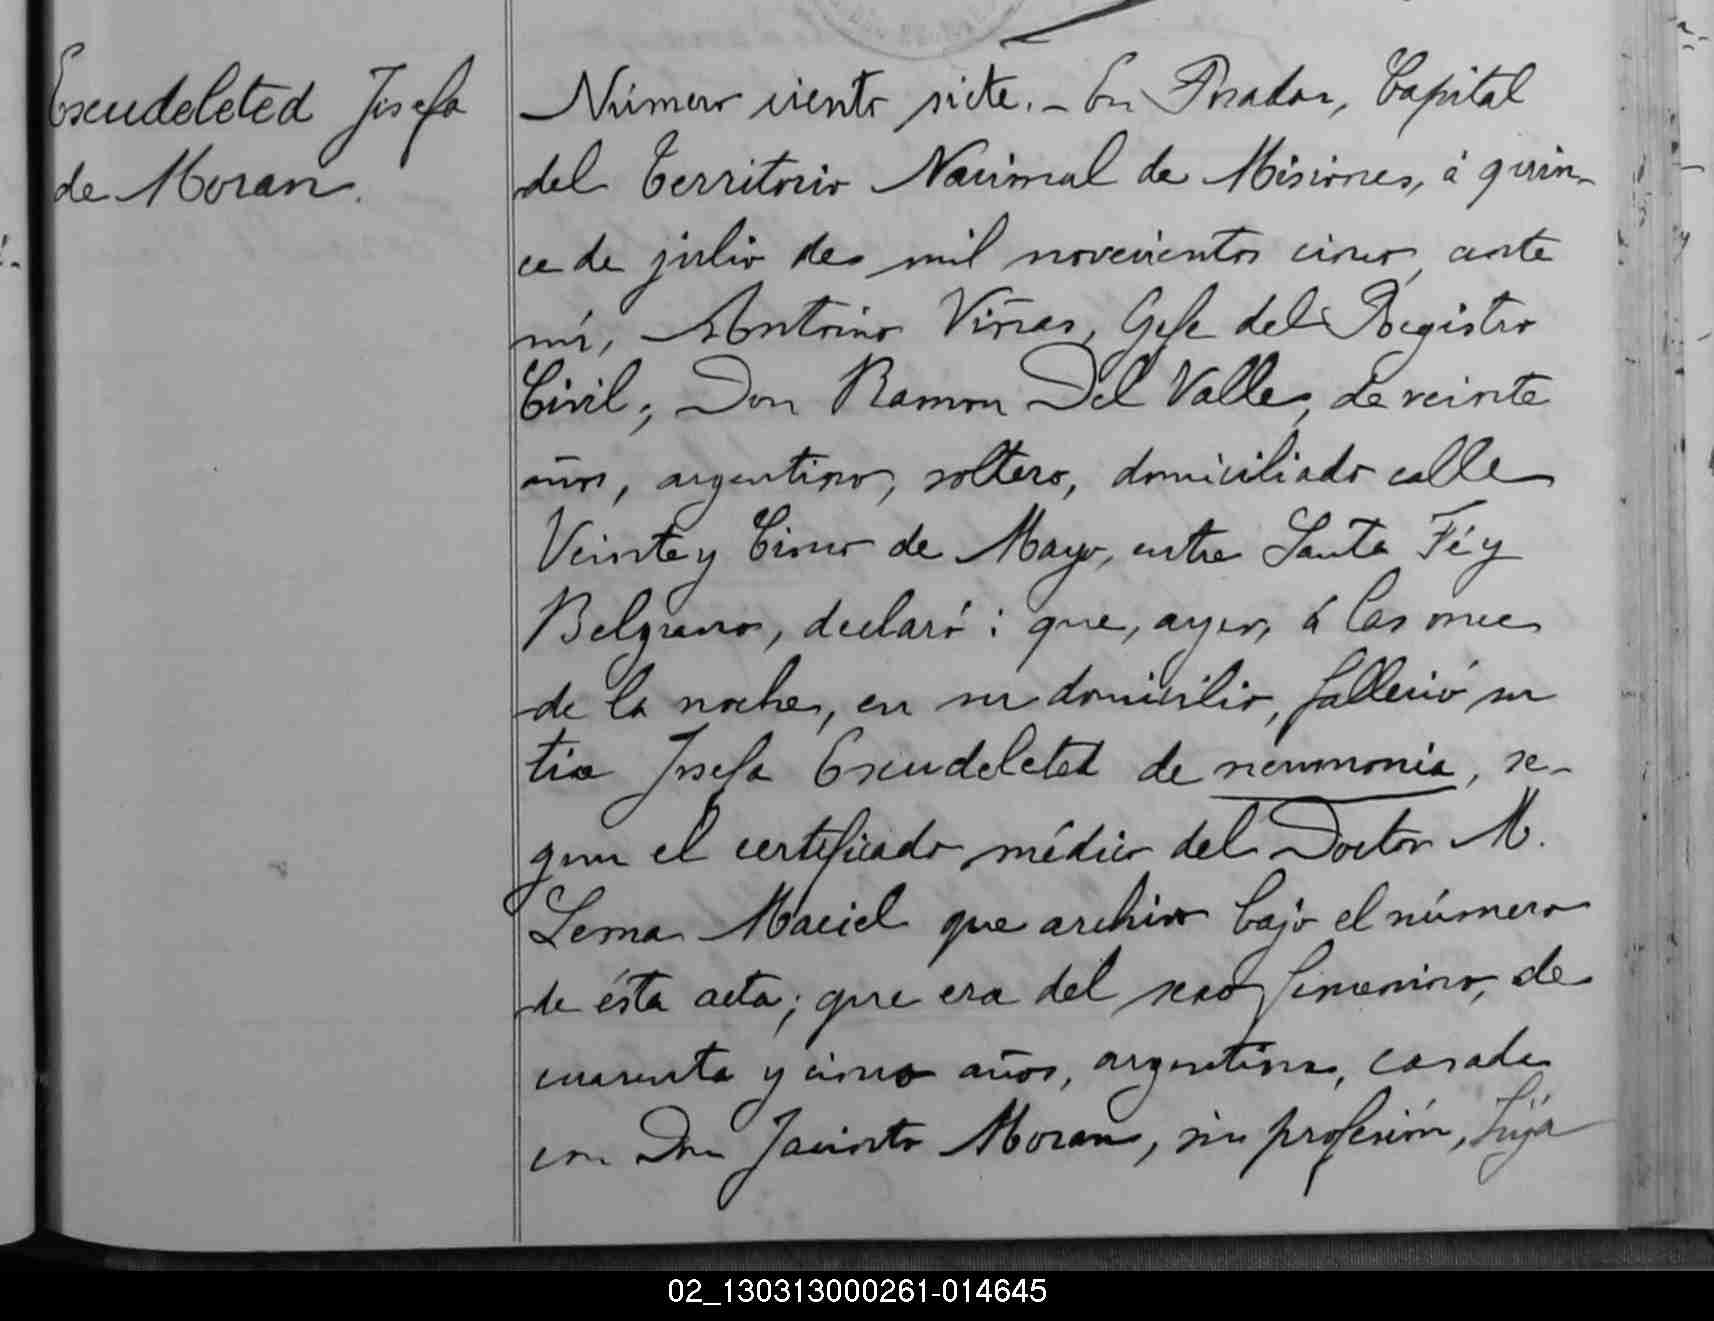 Escudeleted Josefa
de Moran.
Número ciento siete. - En Posadas, Capital
del Territorio Nacional de Misiones, á quin-
ce de julio de mil novecientos cinco, ante
mí, Antonino Viñas, Gefe del Registro
Civil; Don Ramon Del Valle, de veinte
años, argentino, soltero, domiciliado calle
Veinte y Cinco de Mayo, entre Santa Fé y
Belgrano, declaró: que, ayer, á las once
de la noche, en su domicilio, falleció su
tia Josefa Escudeleted de neumonia, se-
gun el certificado médico del Doctor M.
Lema Maciel que archivo bajo el número
de ésta acta; que era del sexo femenino, de
cuarenta y cinco años, argentina, casada
con Don Jacinto Moran, sin profesión, hija
02_130313000261-014645